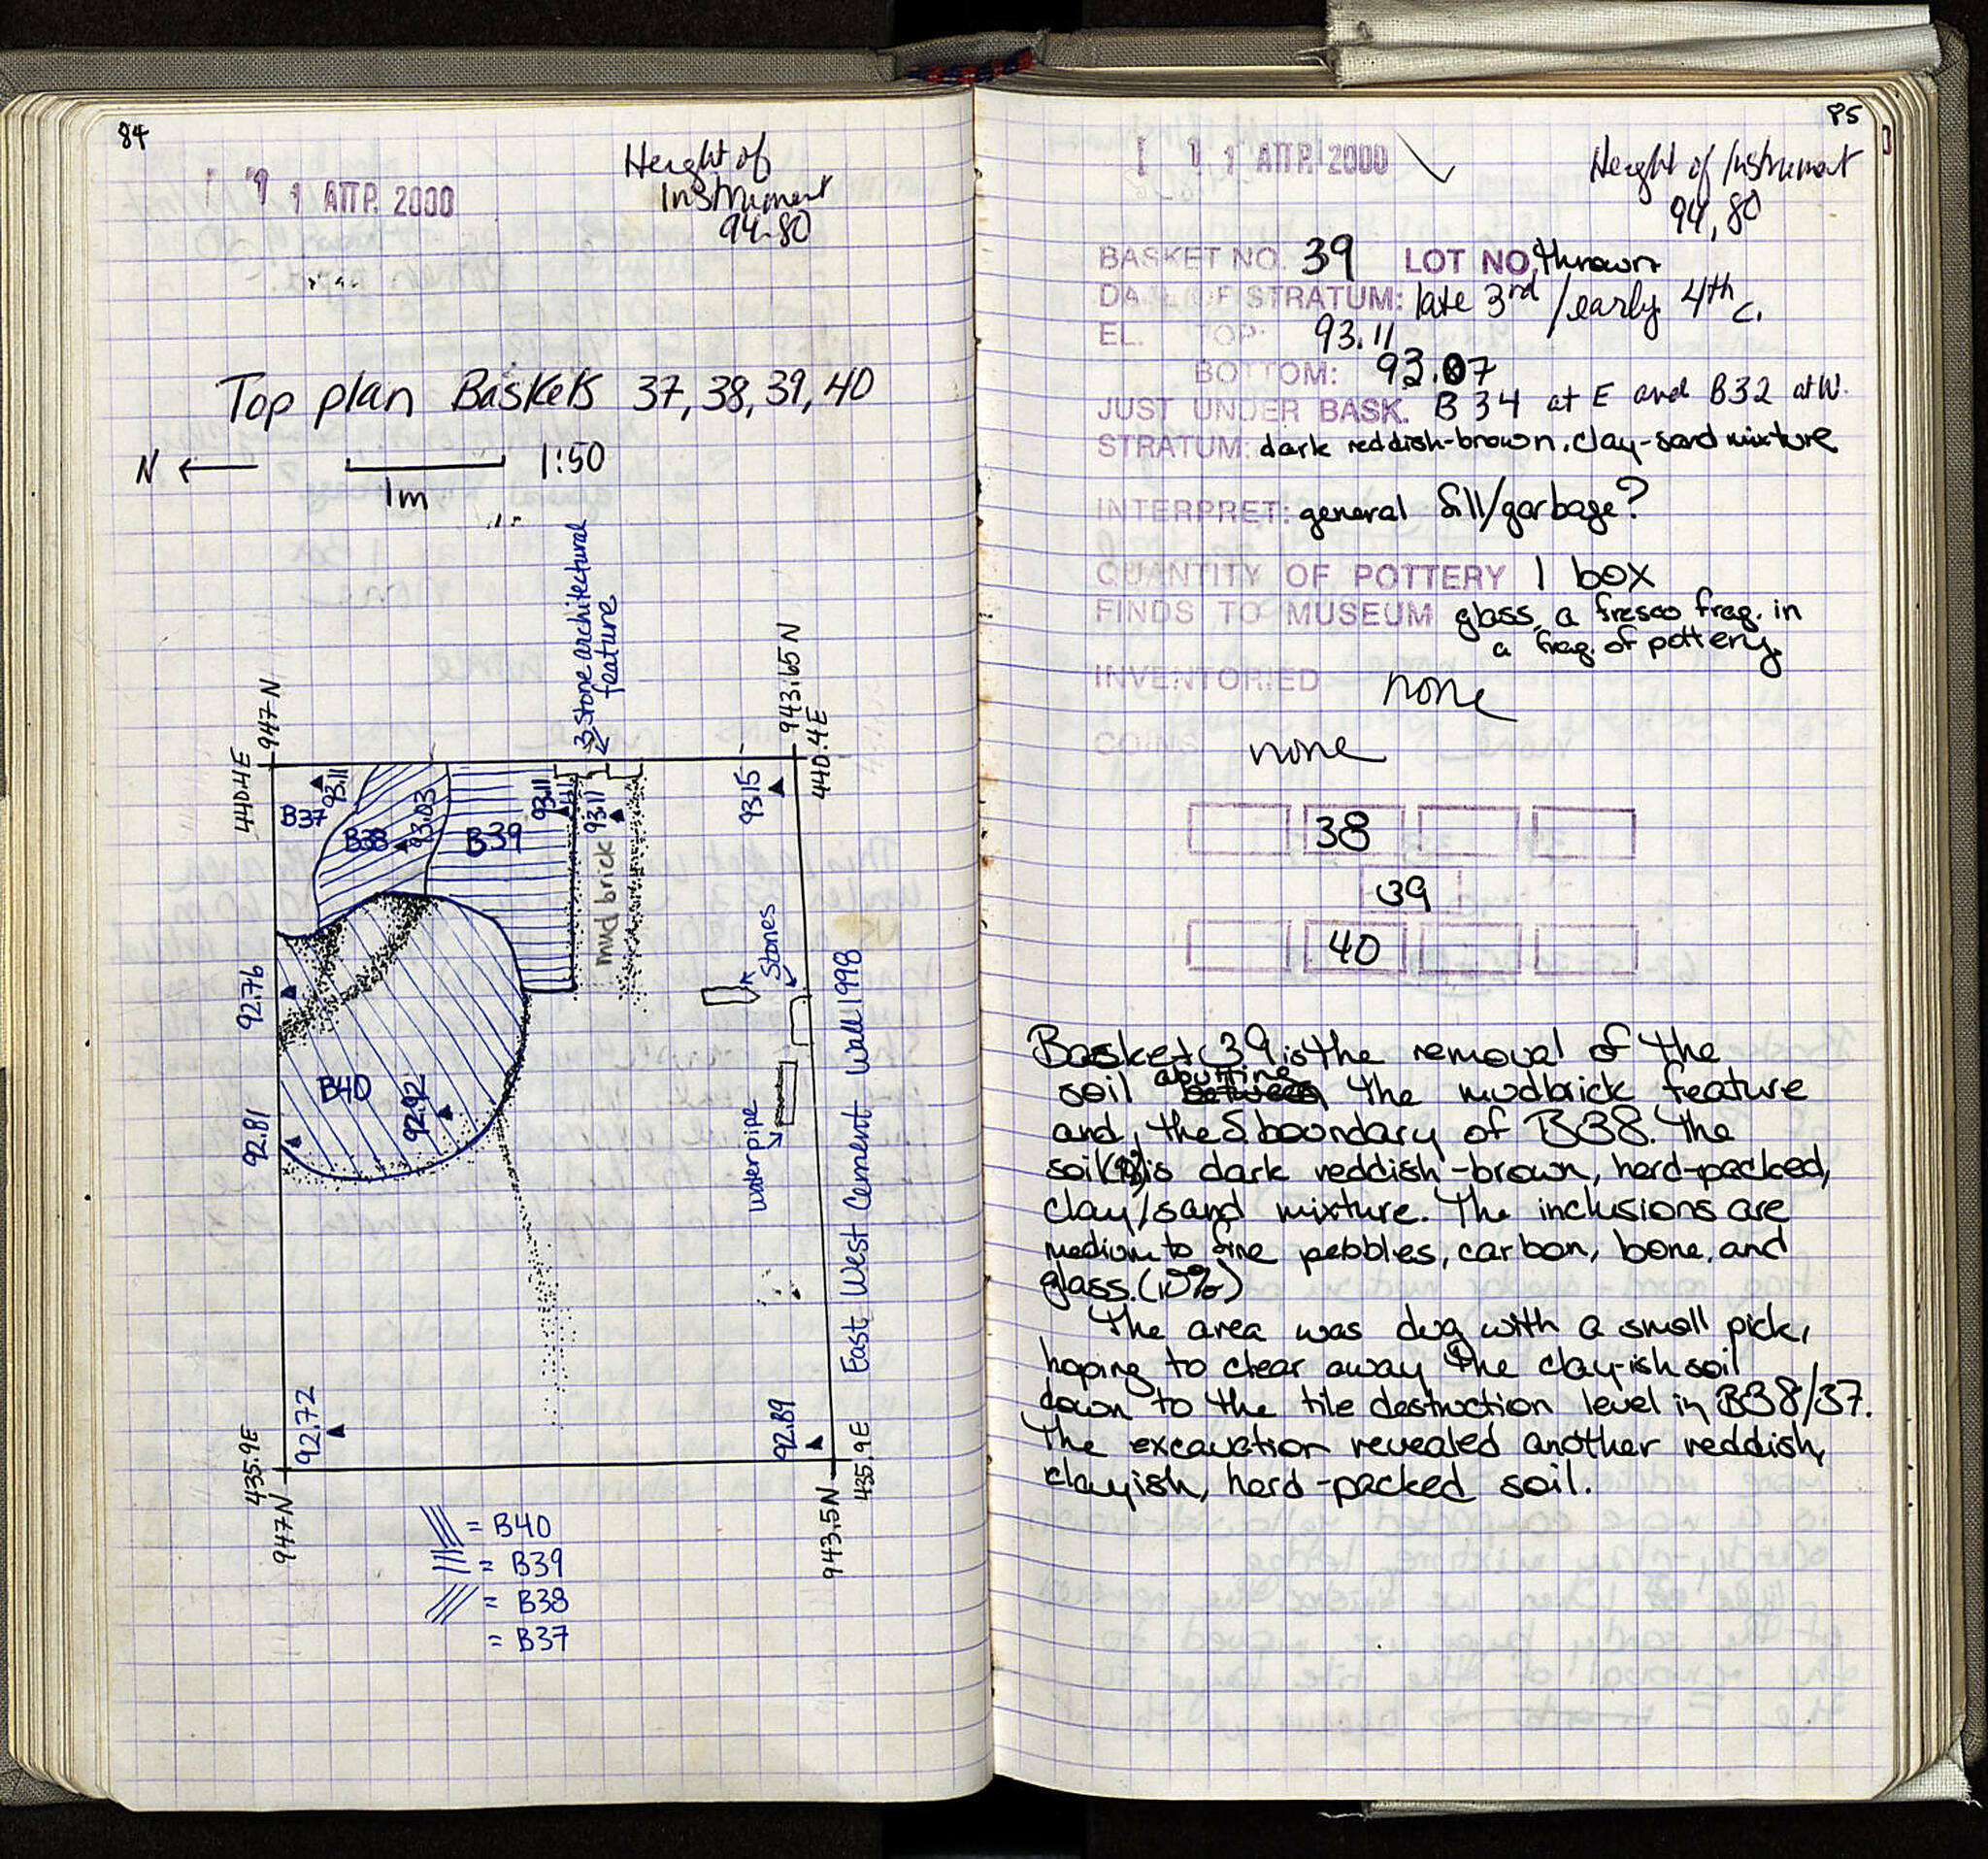 84
1 1 ΑΠΡ. 2000
Height of
Instrument
94.80
Top plan Baskets 37, 38, 39, 40
N
1:50
1m
3 stone architectural
feature
947 N
440.4E
943.65 N
440.4E
B37
93.11
B38
93.03
B39
93.11
93.11
mud brick
93.15
Stones
92.76
B40
92.92
92.81
waterpipe
East West Cement Wall 1998
92.72
92.89
435.9E
947 N
943.5N
435.9E
= B40
= B39
= B38
= B37
85
1 1 ΑΠΡ. 2000
Height of Instrument
94,80
BASKET NO. 39 LOT NO. thrown
DATE OF STRATUM: late 3rd / early 4th c.
EL. TOP: 93.11
BOTTOM: 93.07
JUST UNDER BASK. B34 at E and B32 at W.
STRATUM: dark reddish-brown, clay-sand mixture
INTERPRET: general fill/garbage?
QUANTITY OF POTTERY 1 box
FINDS TO MUSEUM glass, a fresco frag. in
a frag. of pottery
INVENTORIED none
COINS none
38
39
40
Basket 39 is the removal of the
soil abutting the mudbrick feature
and, the S boundary of B38. The
soil is dark reddish-brown, hard-packed,
clay/sand mixture. The inclusions are
medium to fine pebbles, carbon, bone, and
glass. (10%)
The area was dug with a small pick,
hoping to clear away the clay-ish soil
down to the tile destruction level in B38/37.
The excavation revealed another reddish,
clayish, hard-packed soil.